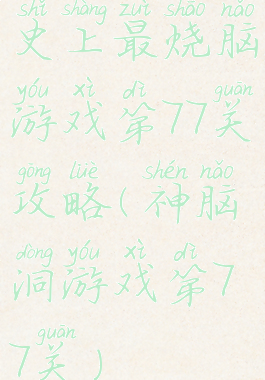 shǐ shàng zuì shāo nǎo
史上最烧脑
yóu xì dì guān
游戏第77关
gōng lüè shén nǎo
攻略(神脑
dòng yóu xì dì
洞游戏第7
guān
7关)